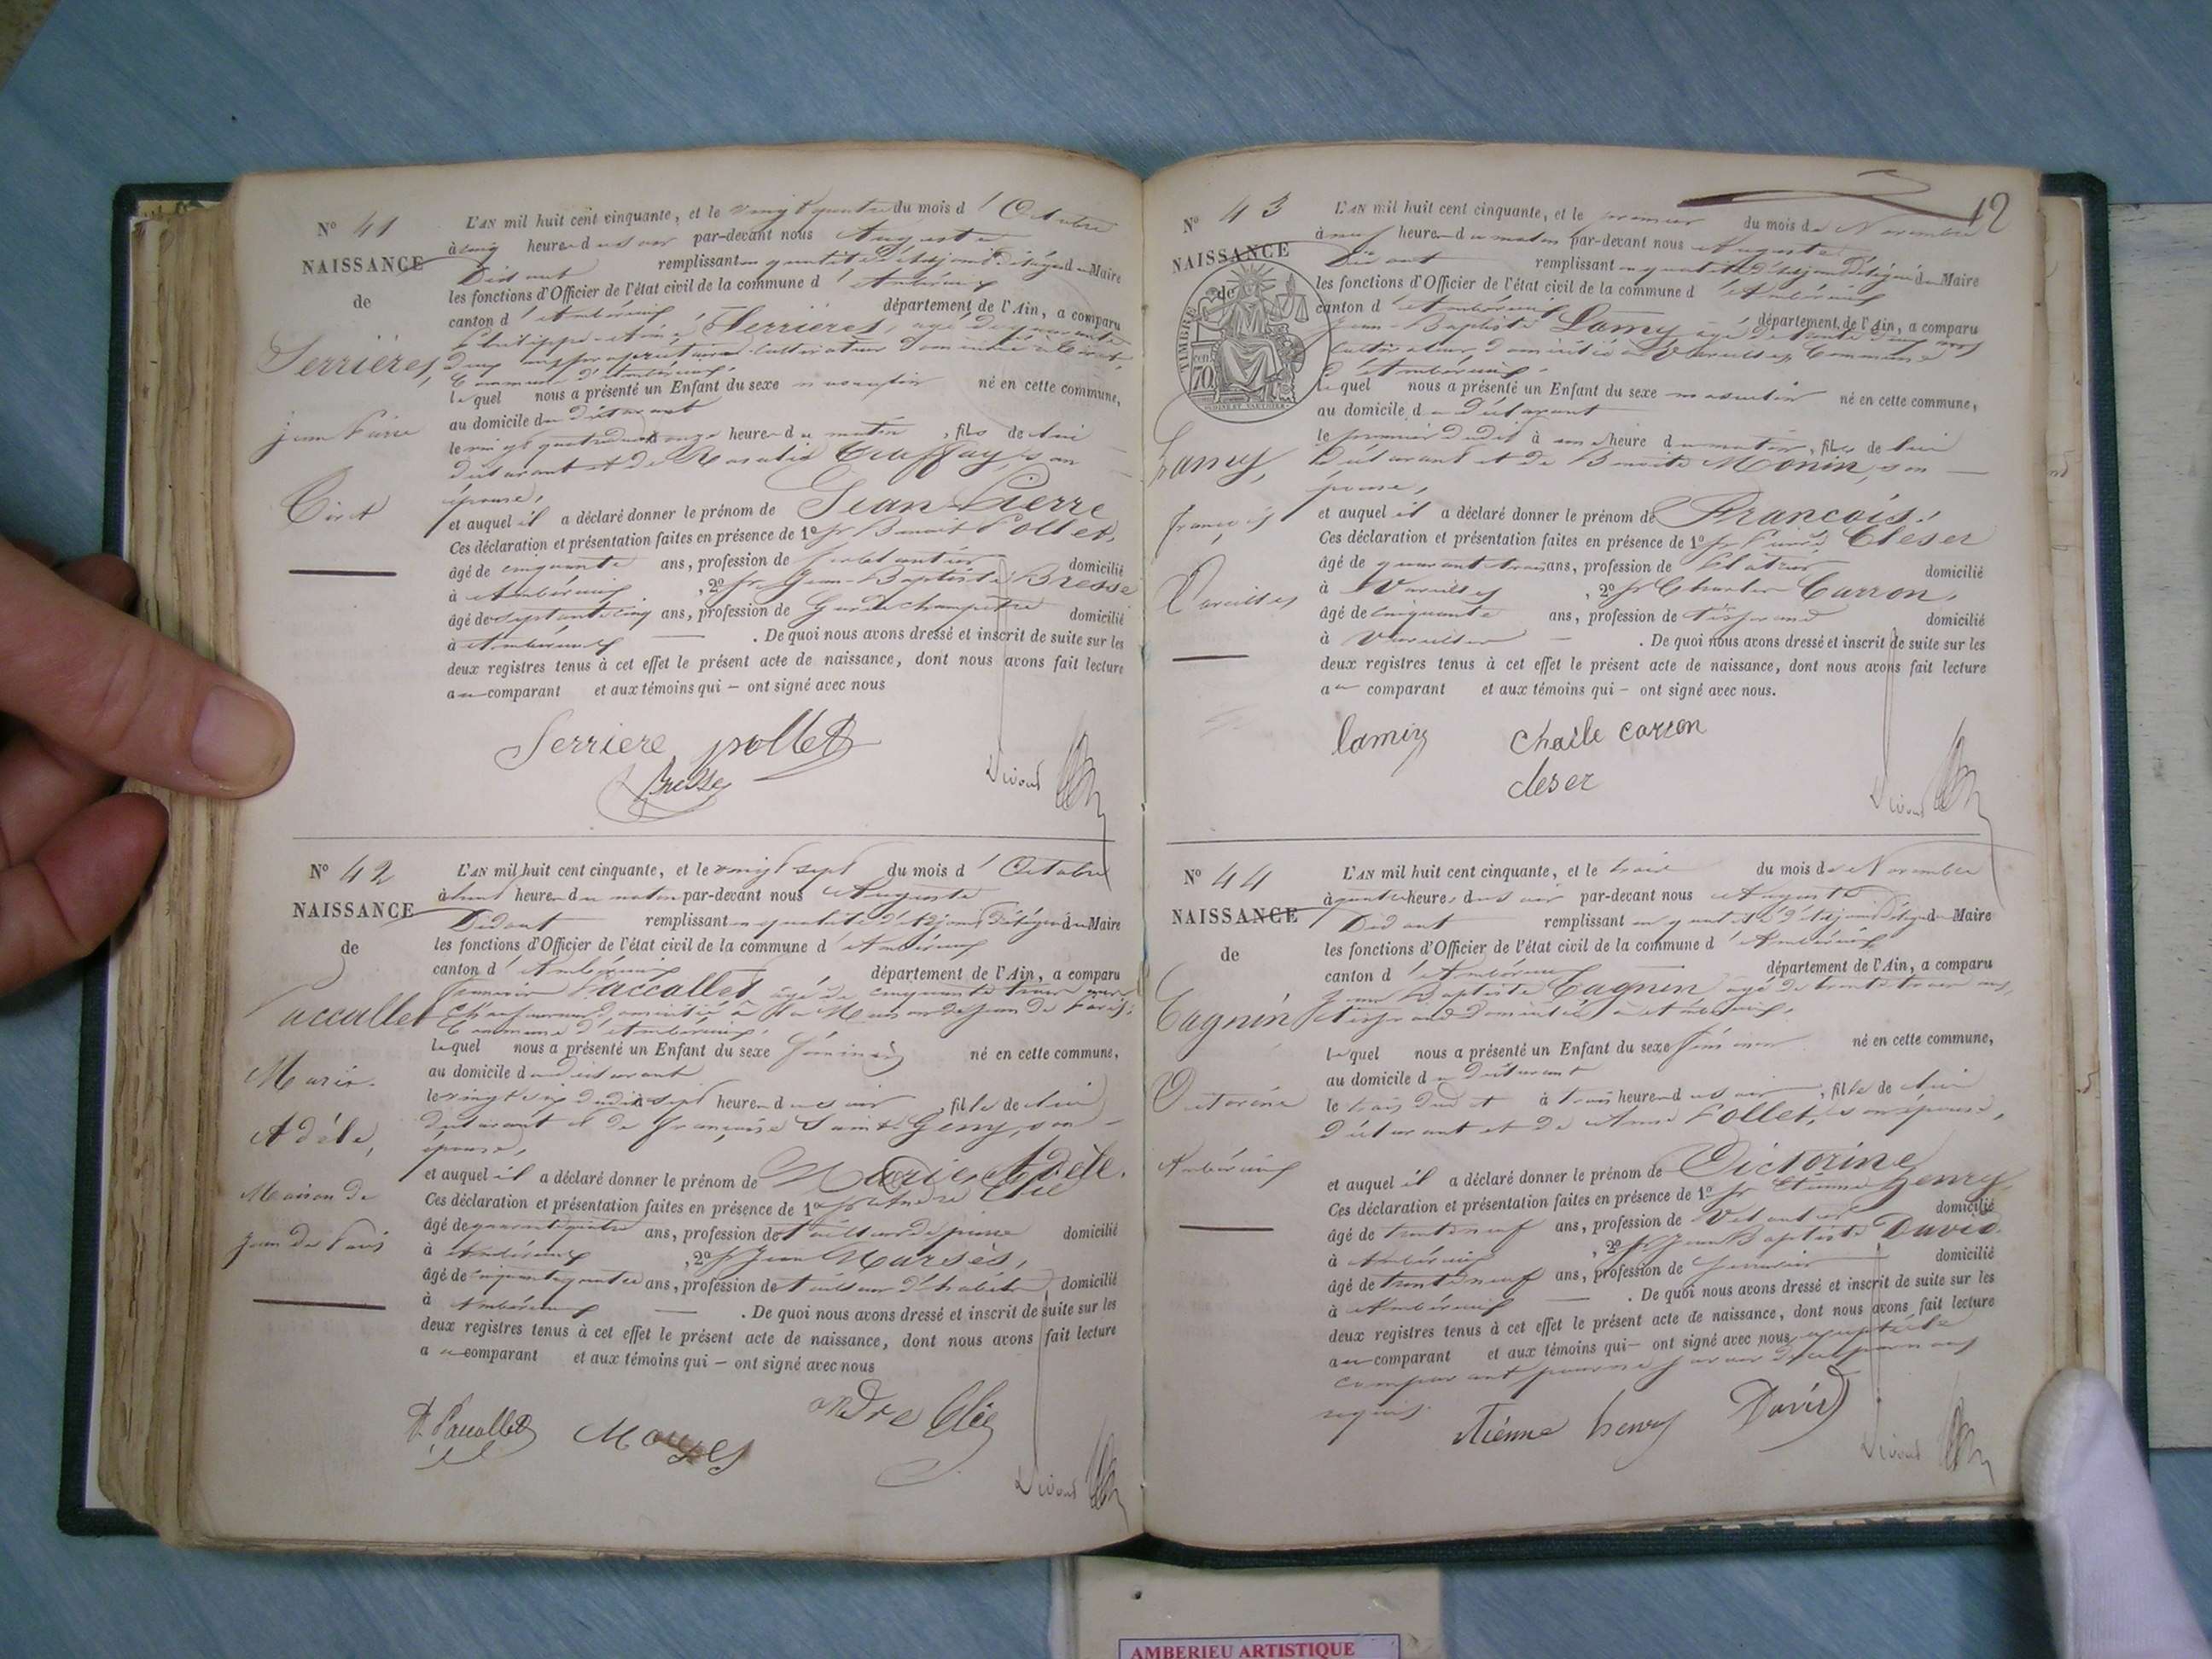 N° 41
NAISSANCE
de
Serrières,
Jean Pierre
Tiret
L'AN mil huit cent cinquante, et le vingt quatre du mois d'Octobre
à cinq heures du soir par-devant nous Auguste
Didout remplissant en qualité d'Adjoint délégué du Maire
les fonctions d'Officier de l'état civil de la commune d'Ambérieux
canton d'Ambérieux département de l'Ain, a comparu
Serrières, agé de quarante
deux ans propriétaire cultivateur domicilié à Tiret
Commune d'Ambérieux,
lequel nous a présenté un Enfant du sexe masculin né en cette commune,
au domicile du Déclarant
le vingt quatre à onze heures du matin, fils de lui
déclarant et de Rosalie son
épouse,
et auquel il a déclaré donner le prénom de Jean Pierre
Ces déclaration et présentation faites en présence de 1° sr Benoit Pollet,
âgé de cinquante ans, profession de ferblantier domicilié
à Ambérieux, 2° sr Jean-Baptiste Bresse
âgé de septante cinq ans, profession de Garde champêtre domicilié
à Ambérieux — . De quoi nous avons dressé et inscrit de suite sur les
deux registres tenus à cet effet le présent acte de naissance, dont nous avons fait lecture
au comparant et aux témoins qui — ont signé avec nous
Serriere pollet
Bresse
N° 42
NAISSANCE
de
Paccallet
Marie
Adèle,
Maison de
Jean de Paris
L'AN mil huit cent cinquante, et le vingt sept du mois d'Octobre
à huit heures du matin par-devant nous Auguste
Didout remplissant en qualité d'Adjoint délégué du Maire
les fonctions d'Officier de l'état civil de la commune d'Ambérieux
canton d'Ambérieux département de l'Ain, a comparu
Paccallet âgé de cinquante trois ans
domicilié à la Maison de Jean de Paris,
Commune d'Ambérieux,
lequel nous a présenté un Enfant du sexe féminin né en cette commune,
au domicile du déclarant
le vingt six dudit à sept heures du soir, fille de lui
déclarant et de Françoise Saint Geny, son
épouse,
et auquel il a déclaré donner le prénom de Marie Adèle.
Ces déclaration et présentation faites en présence de 1° sr André Elie
âgé de quarante quatre ans, profession de tailleur de pierre domicilié
à Ambérieux, 2° sr Jean Marsès,
âgé de cinquante quatre ans, profession de tailleur d'habits domicilié
à Ambérieux — . De quoi nous avons dressé et inscrit de suite sur les
deux registres tenus à cet effet le présent acte de naissance, dont nous avons fait lecture
au comparant et aux témoins qui — ont signé avec nous
andre Elie
12
N° 43
NAISSANCE
de
TIMBRE
70
Lamy,
françois
Vareilles
L'AN mil huit cent cinquante, et le premier du mois de Novembre
à neuf heures du matin par-devant nous Auguste
Didout remplissant en qualité d'Adjoint délégué du Maire
les fonctions d'Officier de l'état civil de la commune d'Ambérieux
canton d'Ambérieux département de l'Ain, a comparu
Jean-Baptiste Lamy âgé de trente cinq ans
cultivateur domicilié à Vareilles, Commune
d'Ambérieux,
lequel nous a présenté un Enfant du sexe masculin né en cette commune,
au domicile du Déclarant
le premier dudit à une heure du matin, fils de lui
Déclarant et de Benoite Monin, son —
épouse,
et auquel il a déclaré donner le prénom de François.
Ces déclaration et présentation faites en présence de 1° sr Cleser
âgé de quarante trois ans, profession de Plâtrier domicilié
à Vareilles, 2° sr Charles Carron,
âgé de cinquante ans, profession de tisserand domicilié
à Vareilles — . De quoi nous avons dressé et inscrit de suite sur les
deux registres tenus à cet effet le présent acte de naissance, dont nous avons fait lecture
au comparant et aux témoins qui — ont signé avec nous.
lamy Chaile carron
cleser
N° 44
NAISSANCE
de
Cagnin
Victorine
Ambérieux
L'AN mil huit cent cinquante, et le trois du mois de Novembre
à quatre heures du soir par-devant nous Auguste
Didout remplissant en qualité d'Adjoint délégué du Maire
les fonctions d'Officier de l'état civil de la commune d'Ambérieux
canton d'Ambérieux département de l'Ain, a comparu
Jean Baptiste Cagnin agé de trente trois ans,
tisserand domicilié à Ambérieux,
lequel nous a présenté un Enfant du sexe féminin né en cette commune,
au domicile du Déclarant
le trois dudit à trois heures du soir, fille de lui
Déclarant et de Anne Pollet, son épouse,
et auquel il a déclaré donner le prénom de Victorine
Ces déclaration et présentation faites en présence de 1° sr Etienne henry,
âgé de trente neuf ans, profession de domicilié
à Ambérieux, 2° sr Jean Baptiste David.
âgé de trente neuf ans, profession de domicilié
à Ambérieux — . De quoi nous avons dressé et inscrit de suite sur les
deux registres tenus à cet effet le présent acte de naissance, dont nous avons fait lecture
au comparant et aux témoins qui — ont signé avec nous excepté le
comparant pour ne savoir de ce par nous
requis.
Etienne henry David
AMBERIEU ARTISTIQUE